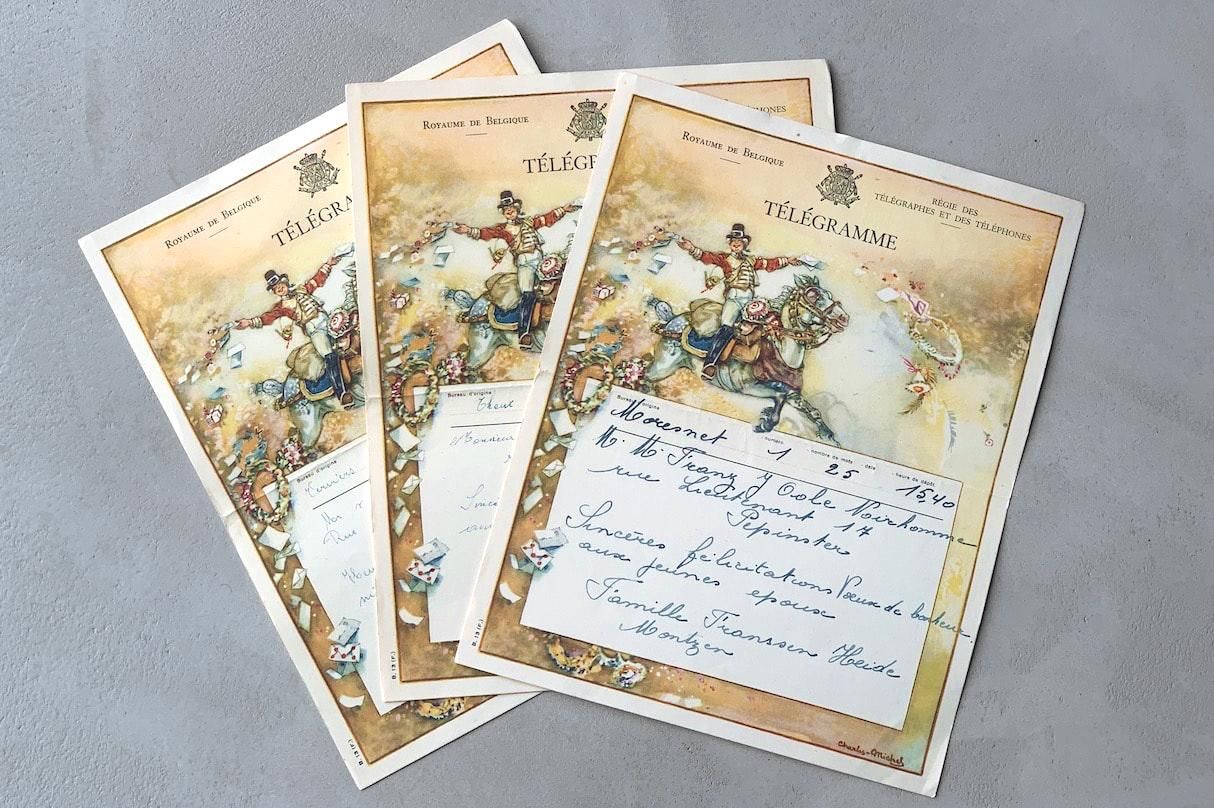 Royaume de Belgique
TÉLÉGRA
Bureau d'origine
Rue
B. 13 (F.)
Royaume de Belgique
PHONES
TÉLÉGR
Bureau d'origine
Theux
Monsieur
Sincè
B. 13 (F.)
Royaume de Belgique
RÉGIE DES
TÉLÉGRAPHES ET DES TÉLÉPHONES
TÉLÉGRAMME
Bureau d'origine
numéro
nombre de mots
date
heure de dépôt
Moresnet 1 25 1540
M. M. Franz y Oole Noirhomme
rue Lieutenant 17
Pepinster
Sincères félicitations Vœux de bonheur.
aux jeunes epoux
Famille Franssen Heide
Montzen
Charles-Michel
B. 13 (F.)